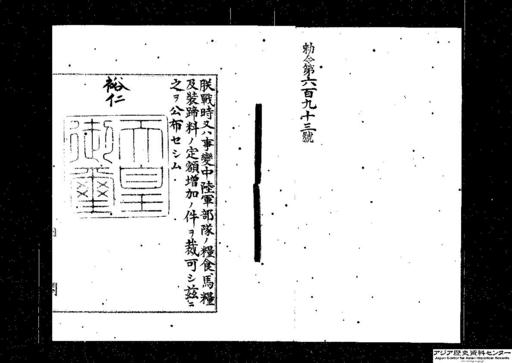 勅令第六百九十三號
朕戰時又ハ事變中陸軍部隊ノ糧食、馬糧
及裝蹄料ノ定額增加ノ件ヲ裁可シ茲ニ
之ヲ公布セシム
裕仁
天皇
御璽
アジア歴史資料センター
Japan Center for Asian Historical Records